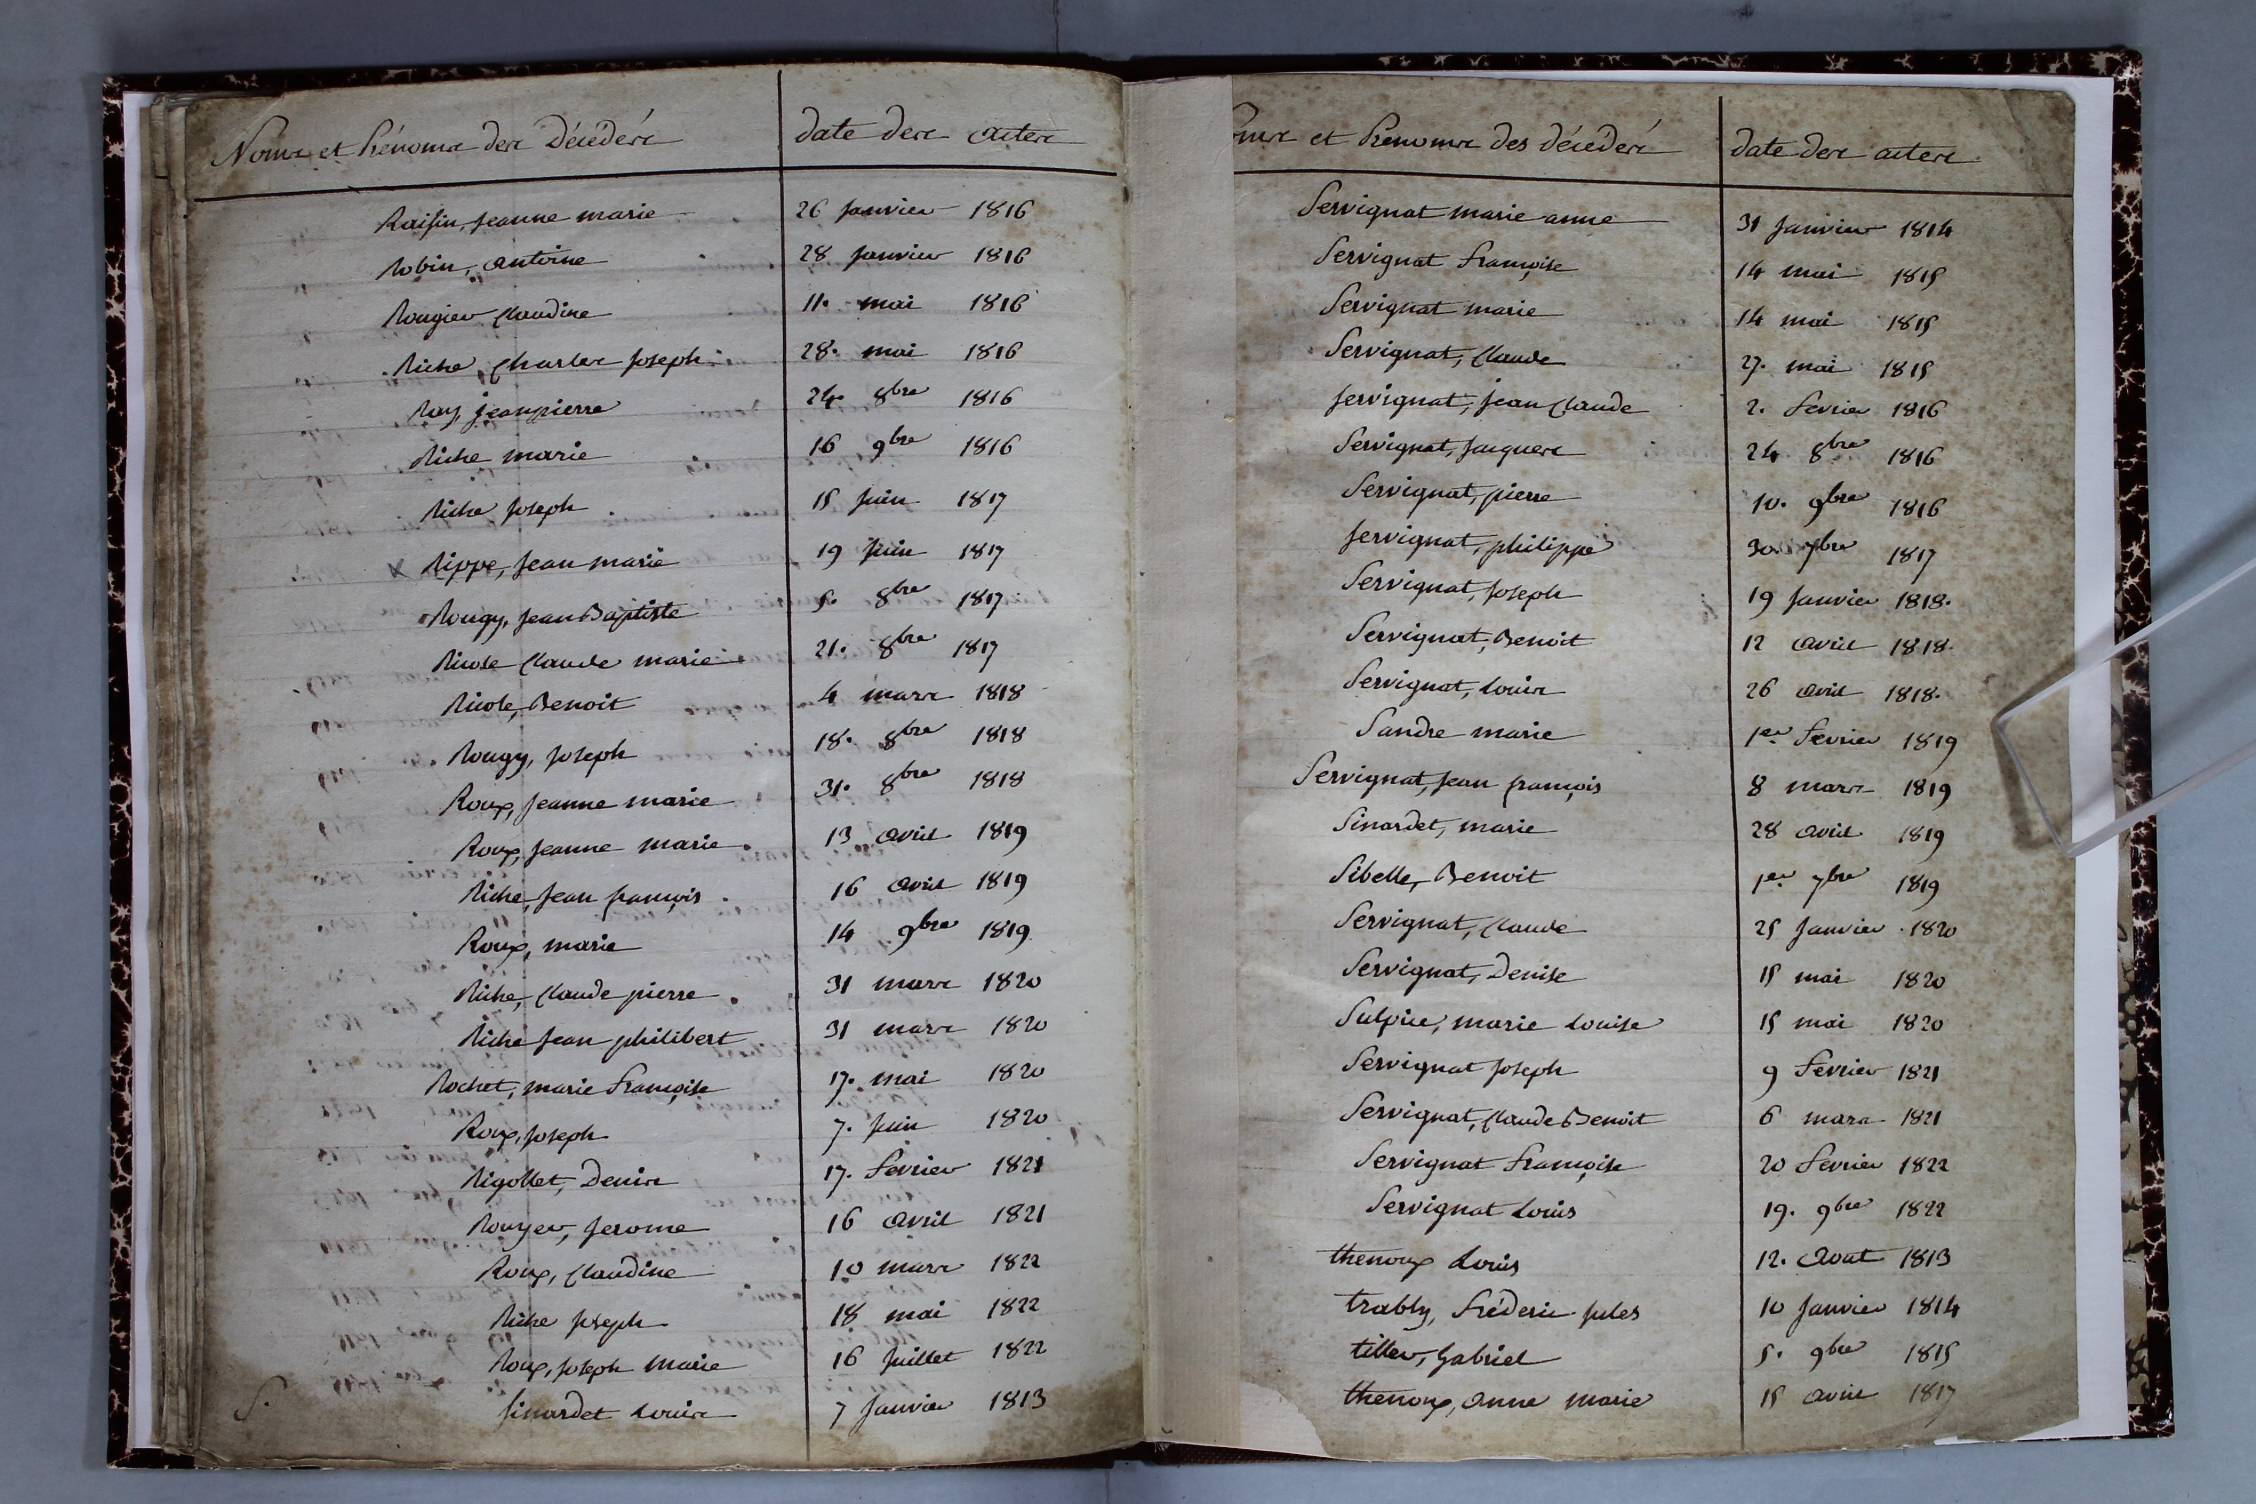 Noms et Prénoms des Décédés date des actes
Raisin, Jeanne marie 26 Janvier 1816
Robin, antoine 28 Janvier 1816
Rougier Claudine 11. mai 1816
Riche Charles Joseph 28. mai 1816
Roy, jean pierre 24. 8bre 1816
Riche marie 16 9bre 1816
Riche Joseph 15 Juin 1817
x Rippe, Jean marie 19 Juin 1817
Rougy, Jean Baptiste 5. 8bre 1817
Nicole Claude marie 21. 8bre 1817
Nicole, Benoit 4 mars 1818
Rougy, Joseph 18. 8bre 1818
Roux, Jeanne marie 31. 8bre 1818
Roux, Jeanne marie 13 avril 1819
Riche, Jean françois 16 avril 1819
Roux, marie 14 9bre 1819
Riche, Claude pierre 31 mars 1820
Riche Jean philibert 31 mars 1820
Rochet, marie Françoise 17. mai 1820
Roux, Joseph 7. Juin 1820
Rigollet, Denis 17. Fevrier 1821
Rouyer, Jerome 16 avril 1821
Roux, Claudine 10 mars 1822
Riche Joseph 18 mai 1822
Roux, Joseph Marie 16 Juillet 1822
S. Sinardet Louis 7 Janvier 1813
oms et Prenoms des décédés date des actes
Servignat marie anne 31 Janvier 1814
Servignat Françoise 14 mai 1815
Servignat marie 14 mai 1815
Servignat, Claude 27. mai 1815
Servignat, jean Claude 2. Fevrier 1816
Servignat, Jacques 24 8bre 1816
Servignat, pierre 10. 9bre 1816
Servignat, philippe 30 7bre 1817
Servignat, Joseph 19 Janvier 1818.
Servignat, Benoit 12 avril 1818.
Servignat, Louis 26 avril 1818.
Sandre marie 1er Fevrier 1819
Servignat, Jean françois 8 mars 1819
Sinardet, marie 28 avril 1819
Sibelle, Benoit 1er 7bre 1819
Servignat, Claude 25 Janvier 1820
Servignat, Denise 15 mai 1820
Sulpice, marie Louise 15 mai 1820
Servignat Joseph 9 Fevrier 1821
Servignat, Claude Benoit 6 mars 1821
Servignat Françoise 20 Fevrier 1822
Servignat Louis 19. 9bre 1822
thenoux Louis 12. Aout 1813
trably, Fréderic Jules 10 Janvier 1814
tiller, Gabriel 5. 9bre 1815
thenoux, Anne marie 15 avril 1817